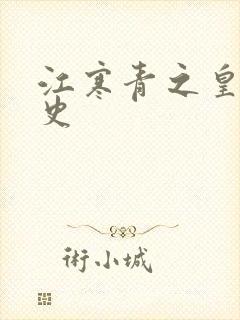 江寒青之皇
史
術小城